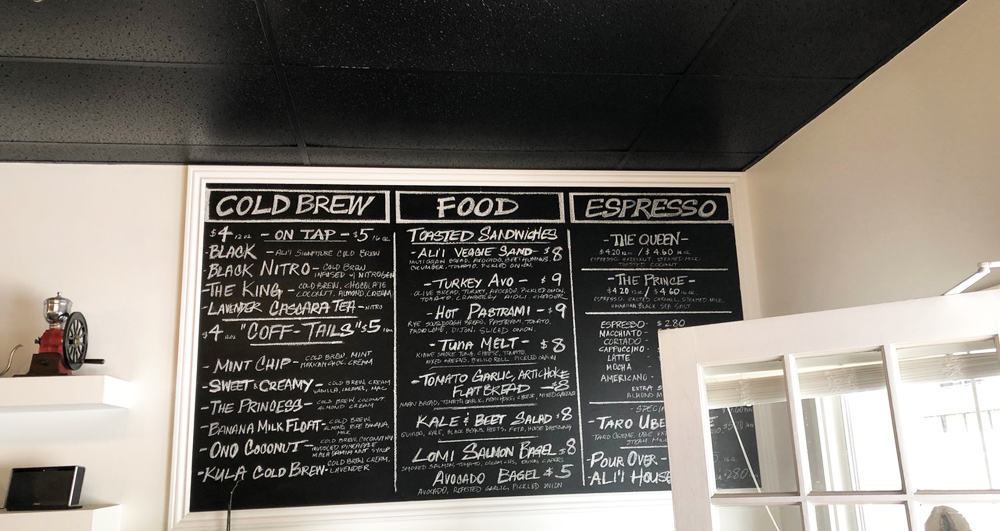 COLD BREW
$4 12 oz - ON TAP - $5 16 oz
BLACK - ALI'I SIGNATURE COLD BREW
-BLACK NITRO - COLD BREW
INFUSED W/ NITROGEN
-THE KING - COLD BREW, CHOCOLATE
COCONUT, ALMOND, CREAM
LAVENDER CASCARA TEA - NITRO
$4 "COFF-TAILS" $5
- MINT CHIP - COLD BREW, MINT
CREAM
-SWEET & CREAMY - COLD BREW CREAM
VANILLA, CARAMEL, MAC
- THE PRINCESS - COLD BREW, COCONUT
ALMOND CREAM
- BANANA MILK FLOAT - COLD BREW,
ALMOND, BANANA,
MILK
- ONO COCONUT - COLD BREW, COCONUT
PINEAPPLE
MACADAMIA NUT SYRUP
-KULA COLD BREW - COLD BREW CREAM,
LAVENDER
FOOD
TOASTED SANDWICHES
- ALI'I VEGGIE SAND - $8
BREAD, AVOCADO, BEET HUMMUS,
CUCUMBER, TOMATO, PICKLED ONION
- TURKEY AVO - $9
OLIVE BREAD, TURKEY, AVOCADO, PICKLED ONION,
TOMATO, CRANBERRY AIOLI, CHEDDAR
- HOT PASTRAMI - $9
RYE SOURDOUGH BREAD, PASTRAMI, TOMATO,
DIJON, SLICED ONION
- TUNA MELT - $8
TUNA, CHEESE, TOMATO
MIXED GREENS, ROLL, PICKLED ONION
- TOMATO GARLIC, ARTICHOKE
FLATBREAD - $8
NAAN BREAD, TOMATO, GARLIC, ARTICHOKE, CHEESE, MIXED GREENS
KALE & BEET SALAD $8
QUINOA, KALE, BLACK BEANS, BEETS, FETA, HOUSE DRESSING
LOMI SALMON BAGEL $8
SMOKED SALMON, TOMATO, CREAM CHS,
AVOCADO BAGEL $5
AVOCADO, ROASTED GARLIC, PICKLED ONION
ESPRESSO
- THE QUEEN -
$4.20 12oz. / $4.60 16oz.
ESPRESSO, HAZELNUT, STEAMED MILK,
COCONUT
- THE PRINCE -
$4.20 12oz. / $4.60 16oz.
ESPRESSO, SALTED CARAMEL, STEAMED MILK,
HAWAIIAN BLACK SEA SALT
ESPRESSO $2.80
MACCHIATO
CORTADO
CAPPUCCINO
LATTE
MOCHA
AMERICANO
EXTRA
ALMOND M
- SPECI
TARO UBE
POUR OVER -
-ALI'I HOUSE